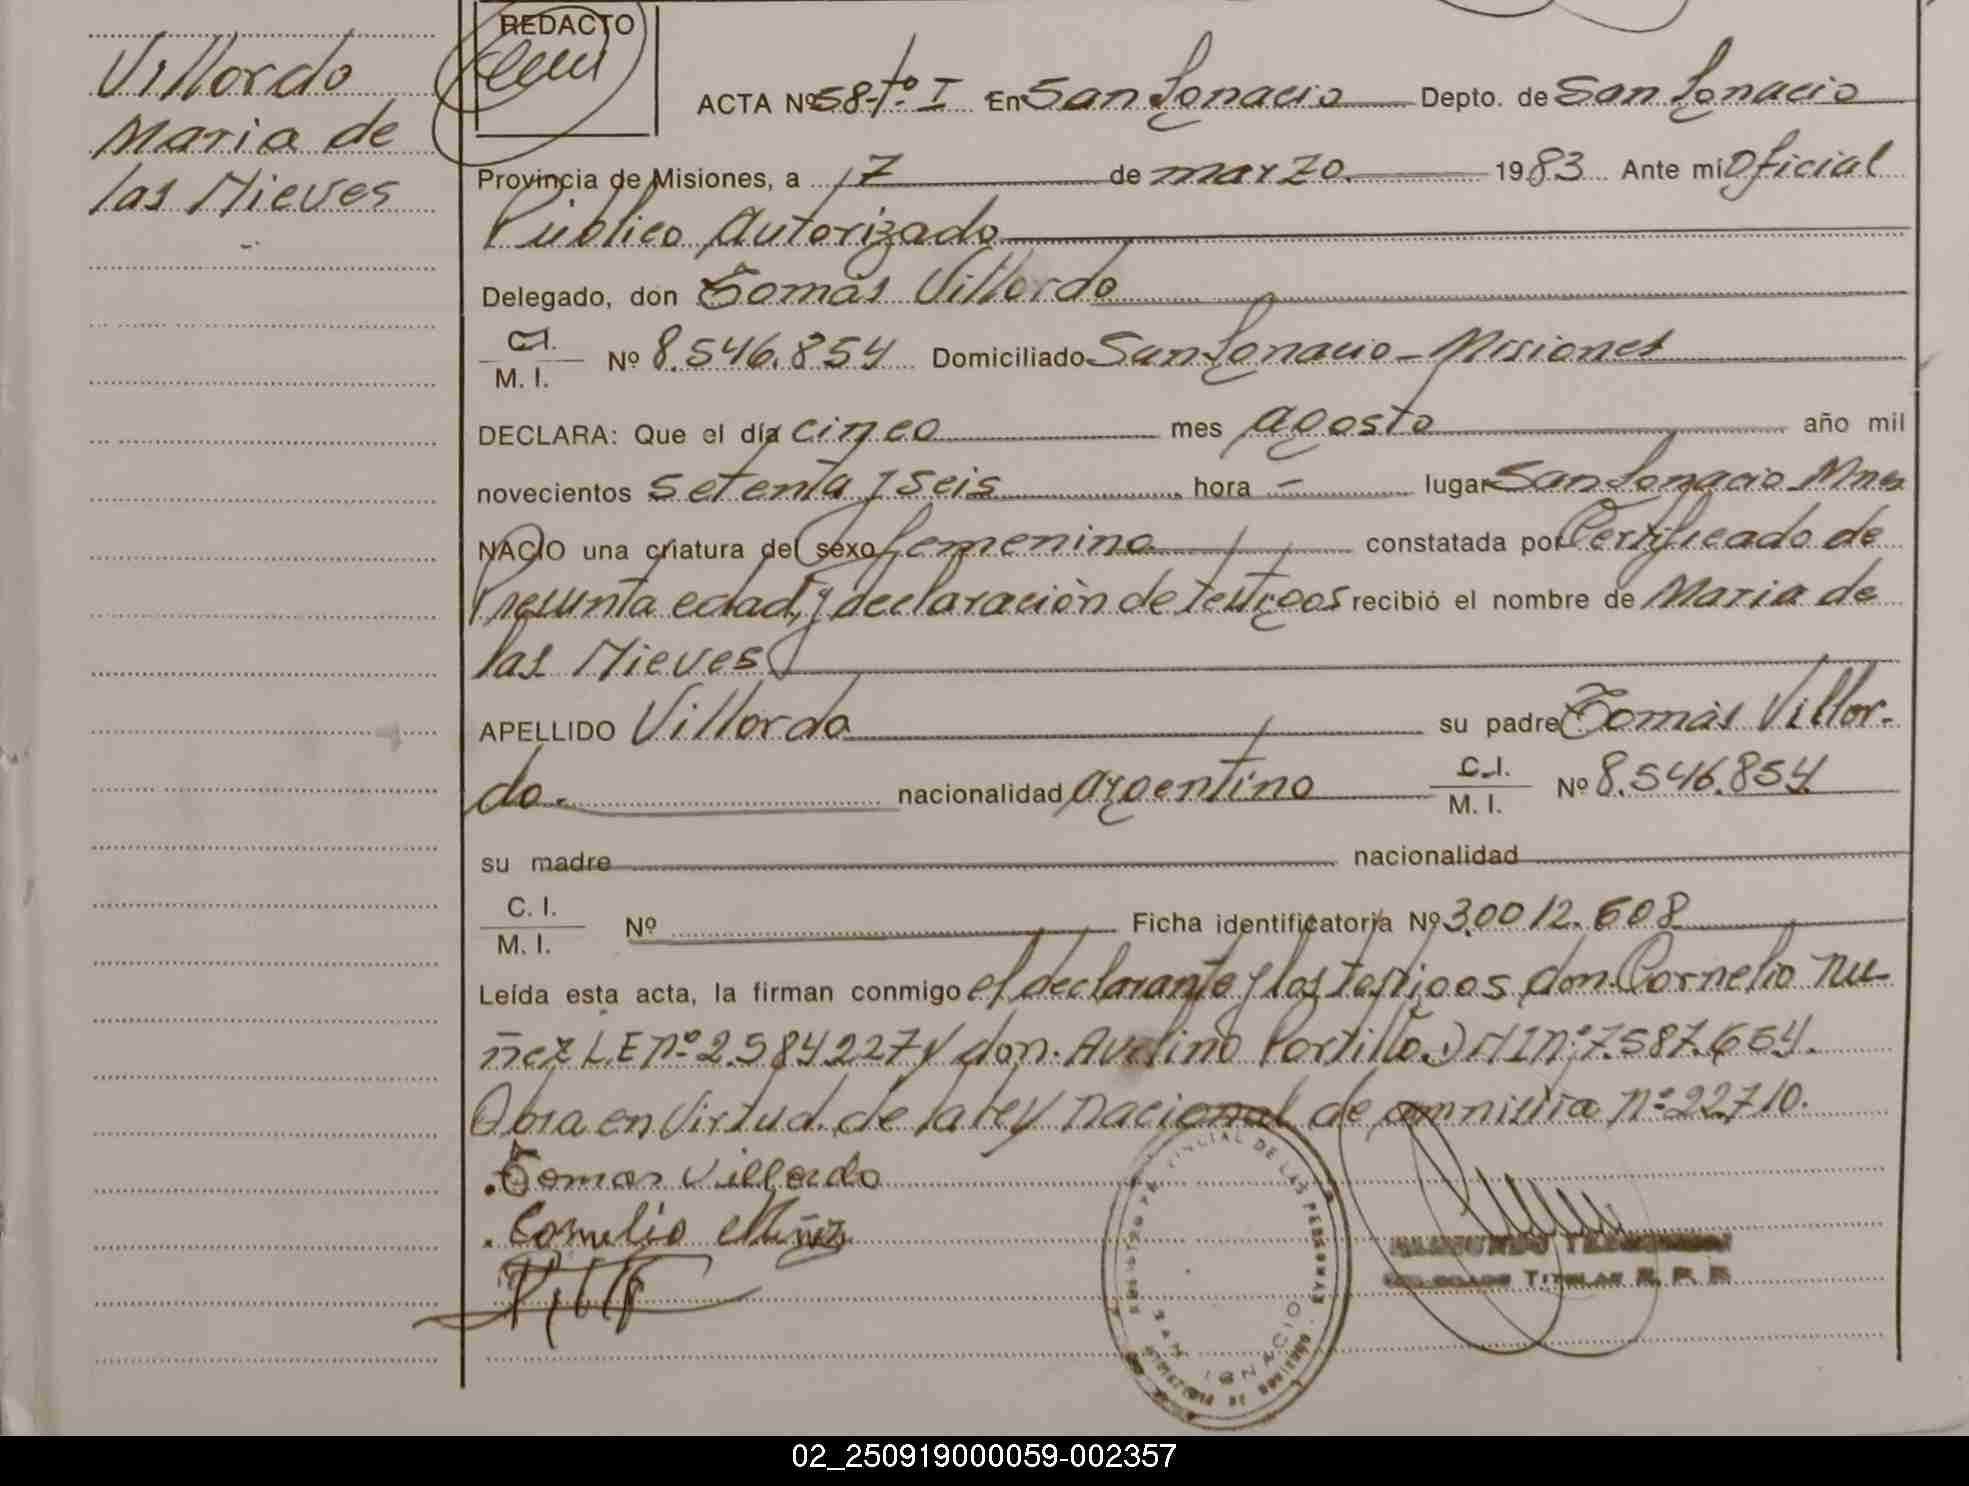 Villordo
Maria de
las Nieves
REDACTO
ACTA Nº 58-tº I En San Ignacio Depto. de San Ignacio
Provincia de Misiones, a 7 de marzo 1983 Ante mi Oficial
Público Autorizado
Delegado, don Tomás Villordo
C.I.
M. I. Nº 8.546.854 Domiciliado San Ignacio - Misiones
DECLARA: Que el día cinco mes agosto año mil
novecientos setenta y seis hora - lugar San Ignacio Mnes
NACIO una criatura del sexo femenino constatada por Certificado de
Presunta edad, y declaración de testigos recibió el nombre de Maria de
las Nieves
APELLIDO Villordo su padre Tomás Villor-
do. nacionalidad argentino C.I.
M. I. Nº 8.546.854
su madre nacionalidad
C. I.
M. I. Nº Ficha identificatoria Nº 30012.608
Leída esta acta, la firman conmigo el declarante y los testigos don Cornelio Nu-
ñez L.E nº 2.584227 y don. Avelino Portillo. DNI nº 7.587.654.
Obra en Virtud de la ley nacional de amnistia nº 22710.
Tomas Villordo
Cornelio Nuñez
REGISTRO PROVINCIAL DE LAS PERSONAS
SAN IGNACIO
DELEGADO TITULAR R. P. P.
02_250919000059-002357